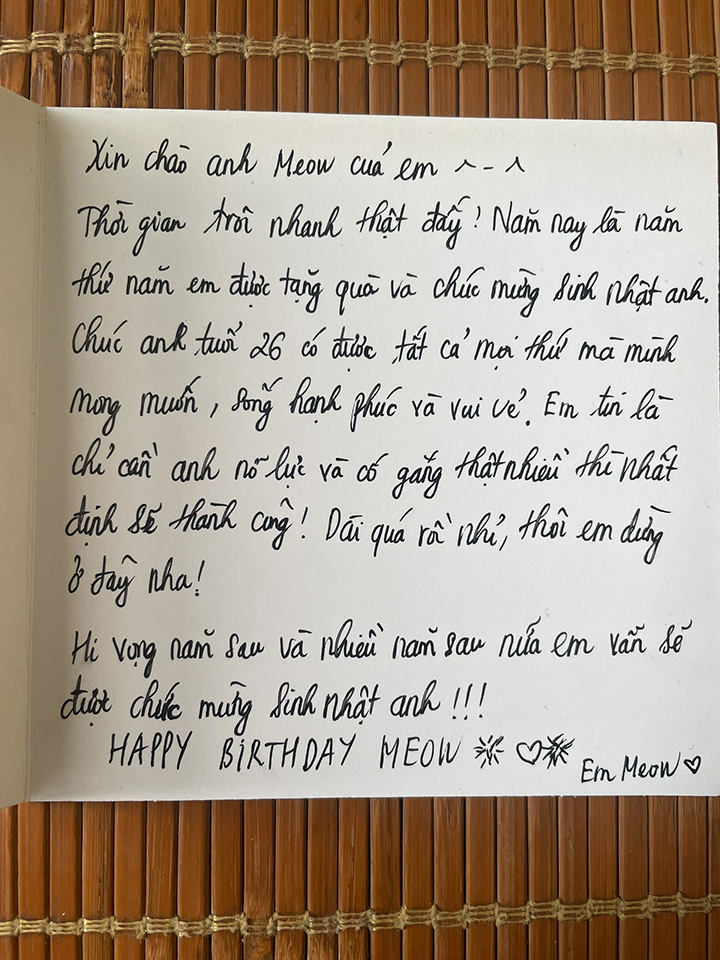 Xin chào anh Meow của em ^-^
Thời gian trôi nhanh thật đấy! Năm nay là năm
thứ năm em được tặng quà và chúc mừng sinh nhật anh.
Chúc anh tuổi 26 có được tất cả mọi thứ mà mình
mong muốn, sống hạnh phúc và vui vẻ. Em tin là
chỉ cần anh nỗ lực và cố gắng thật nhiều thì nhất
định sẽ thành công! Dài quá rồi nhỉ, thôi em dừng
ở đây nha!
Hi vọng năm sau và nhiều năm sau nữa em vẫn sẽ
được chúc mừng sinh nhật anh!!!
HAPPY BIRTHDAY MEOW ♡
Em Meow ♡